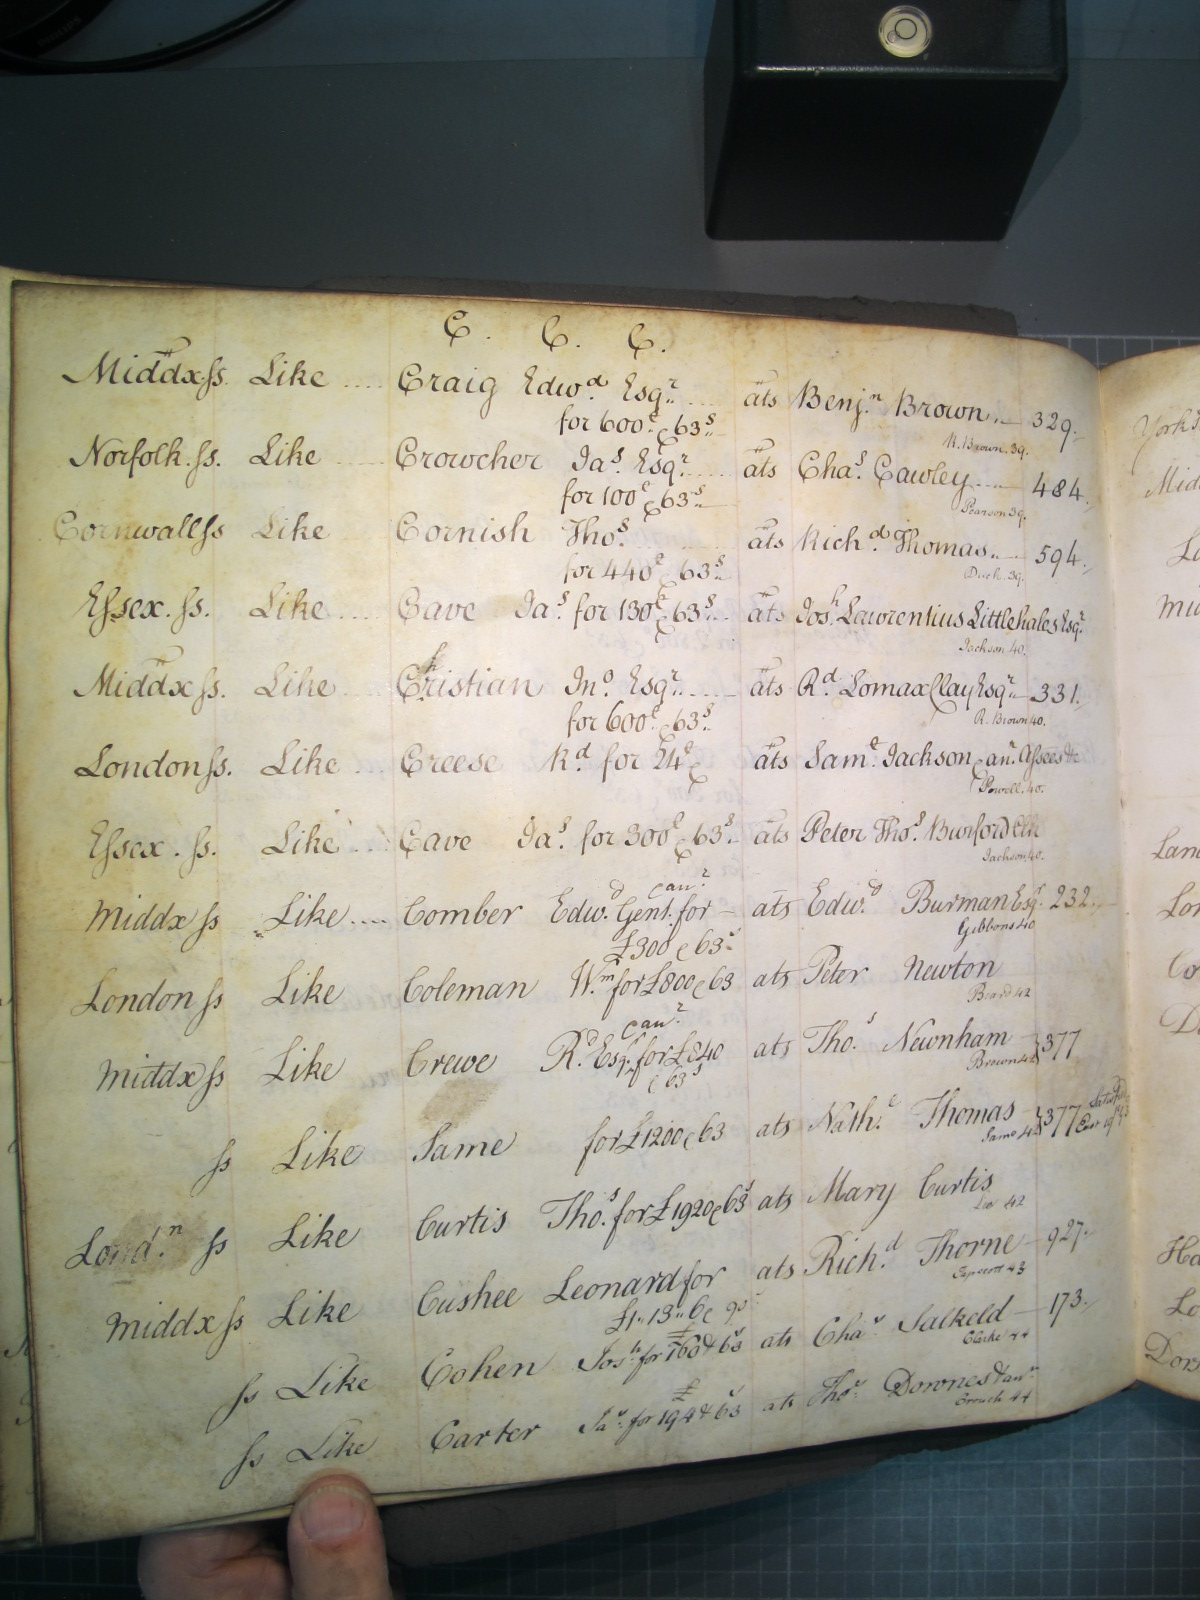 C. C. C.
Middx ss. Like .... Craig Edwd. Esqr. .... ats Benjn. Brown. 329.
for 600£ & 63s. R. Brown. 39.
Norfolk. ss. Like Crowcher Jas. Esqr. .... ats Chas. Cawley .... 484.
for 100£ & 63s Pearson 39.
Cornwall ss Like Cornish Thos. ats Richd. Thomas .. 594.
for 440£ & 63s. 39.
Essex. ss. Like .... Cave Jas. for 130£ & 63s. ats Josh. Lawrentius Littlehales Esqr.
Jackson 40.
Middx ss. Like Christian Jno. Esqr. .... ats Rd. Lomax Clay Esqr. 331.
for 600£ & 63s. R. Brown 40.
London ss. Like .... Creese Rd. for 24£ & ats Saml. Jackson & anr. Assees &c
Powell. 40.
Essex. ss. Like Cave Jas. for 300£ & 63s. ats Peter Thos. Burford Clk
Jackson 40.
Middx ss Like .... Comber Edwd. Gent. & anr. for ats Edwd. Burman Esqr. 232.
£300 & 63s Gibbons 40
London ss Like Coleman Wm. for £800 & 63 ats Peter Newton
Beard 42
Middx ss Like Crewe Rd. Esqr. & anr. for £840 ats Thos. Newnham 377
& 63s Brown 42
ss Like Same for £1200 & 63 ats Nathl. Thomas 377
Same 42
Londn. ss Like Curtis Thos. for £1920 & 63s ats Mary Curtis
42
Middx ss Like Cushee Leonard for ats Richd. Thorne 927.
£1..13..6 & 43
ss Like Cohen Josh. for £160 & 63s ats Chas. Salkeld 173.
Clarke 44
ss Like Carter Jas. for £194 & 63s ats Thos. Downes & anr.
Crouch 44